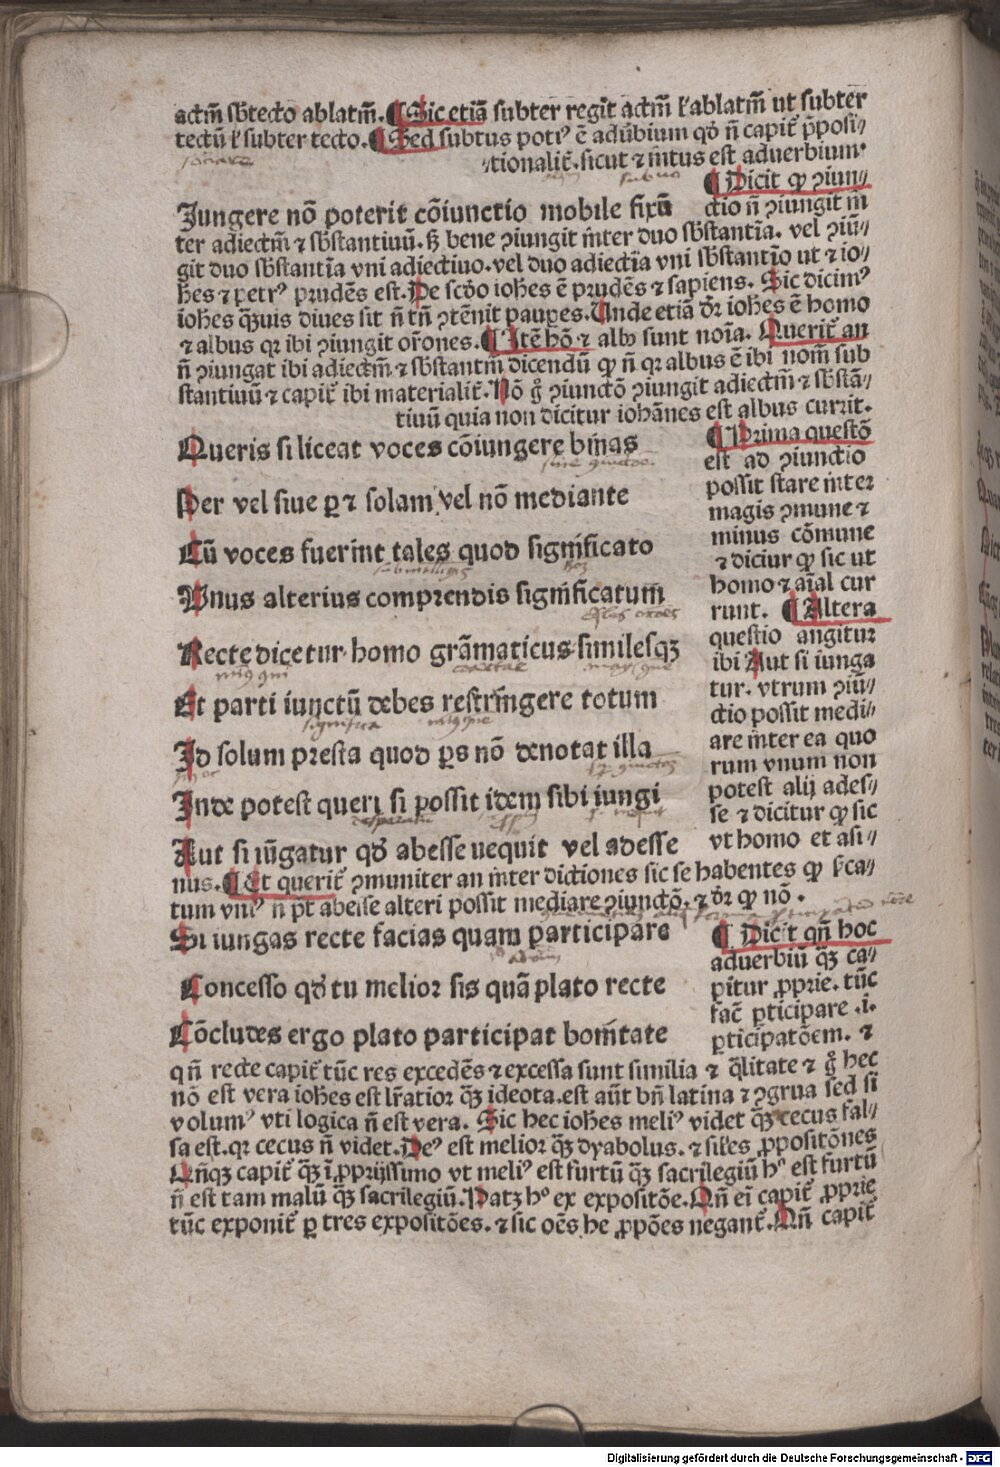 actm̄ sb̄tecto ablatm̄. ¶ Sic etiā subter regit actm̄ ł ablatm̄ ut subter
tectū ł subter tecto. ¶ Sed subtus potiꝰ ē adūbium qd̓ n̄ capit̄ p̄posi⸗
tionalit̄. sicut ⁊ īntus est aduerbium.
¶ Dicit ꝙ ꝯiun⸗
Jungere nō poterit cōiunctio mobile fixū
ctio n̄ ꝯiungit in
ter adiectm̄ ⁊ sb̄stantiuū. sꝫ bene ꝯiungit inter duo sb̄stantīa. vel ꝯiū⸗
git duo sb̄stantīa vni adiectiuo. vel duo adiectīa vni sb̄stantīo ut ⁊ io⸗
h̄es ⁊ petrꝰ prudēs est. De scd̓o ioh̄es ē prudēs ⁊ sapiens. Sic dicimꝰ
ioh̄es qͣꝫuis diues sit n̄ tn̄ ꝯtēnit pauꝑes. Unde etiā d̓r ioh̄es ē homo
⁊ albus qꝛ ibi ꝯiungit or̄ones. ¶ Itē hō ⁊ albꝰ sunt noīa. Querit̄ an
n̄ ꝯiungat ibi adiectm̄ ⁊ sb̄stantm̄ dicendū ꝙ n̄ qꝛ albus ē ibi nom̄ sub
stantiuū ⁊ capit̄ ibi materialit̄. Nō g̊ ꝯiunctō ꝯiungit adiectm̄ ⁊ sb̄stā⸗
tiuū quia non dicitur iohānes est albus currit.
Queris si liceat voces cōiungere binas
Per vel siue ꝑ ⁊ solam vel nō mediante
Cū voces fuerint tales quod significato
Unus alterius comprendis significatum
Recte dicetur homo grāmaticus similesqꝫ
Et parti iunctū debes restringere totum
Id solum presta quod ꝑs nō denotat illa
Inde potest queri si possit idem sibi iungi
Aut si iūgatur qd̓ abesse nequit vel adesse
¶ Prima questō
est ad ꝯiunctio
possit stare inter
magis ꝯmune ⁊
minus cōmune
⁊ diciur ꝙ sic ut
homo ⁊ aīal cur
runt. ¶ Altera
questio angitur
ibi Aut si iunga
tur. vtrum ꝯiū⸗
ctio possit medi⸗
are inter ea quo
rum vnum non
potest alij ades⸗
se ⁊ dicitur ꝙ sic
vt homo et asi⸗
nus. ¶ Et querit̄ ꝯmuniter an inter dictiones sic se habentes ꝙ s̄ca⸗
tum vniꝰ n̄ pt̄ abesse alteri possit mediare ꝯiunctō. ⁊ d̓r ꝙ nō.
Si iungas recte facias quam participare
Concesso qd̓ tu melior sis quā plato recte
Cōcludes ergo plato participat bonitate
¶ Dicit qn̄ hoc
aduerbiū qͣꝫ ca⸗
pitur ꝓprie. tūc
fac̄ ꝑticipare .i.
ꝑticipatōem. ⁊
qn̄ recte capit̄ tūc res excedēs ⁊ excessa sunt similia ⁊ q̄litate ⁊ g̊ hec
nō est vera ioh̄es est lr̄atior qͣꝫ ideota. est aūt bn̄ latina ⁊ ꝯgrua sed si
volumꝰ vti logica n̄ est vera. Sic hec ioh̄es meliꝰ videt qͣꝫ cecus fal⸗
sa est. qꝛ cecus n̄ videt. Deꝰ est melior qͣꝫ dyabolus. ⁊ sil̄es ꝓpositōnes
Qn̄qꝫ capit̄ qͣꝫ ī ꝓprijssimo vt meliꝰ est furtū qͣꝫ sacrilegiū hͦ est furtū
n̄ est tam malū qͣꝫ sacrilegiū. Patꝫ hͦ ex expositōe. Qn̄ ei capit̄ ꝓprie
tūc exponit̄ ꝑ tres expositōes. ⁊ sic oēs he ꝓpōes negant̄. Qn̄ capit̄
Digitalisierung gefördert durch die Deutsche Forschungsgemeinschaft - DFG